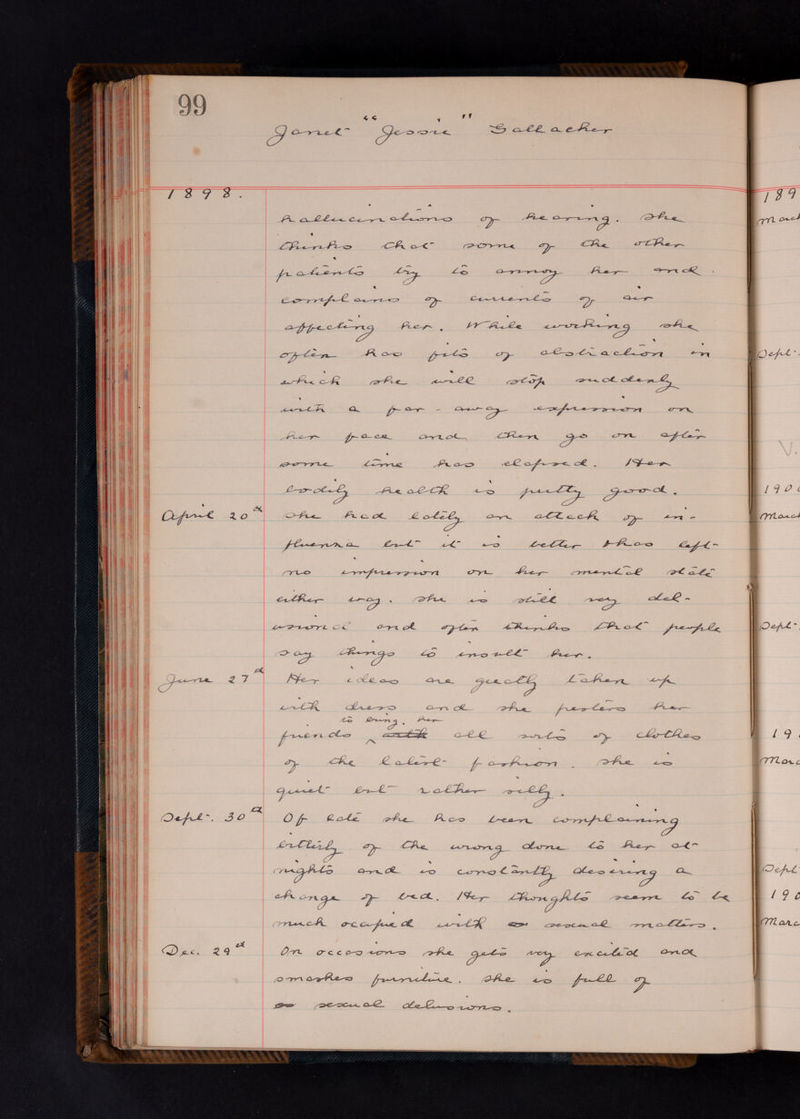 99
Janet "Jessie" Gallacher
1898.
hallucinations of hearing. She
thinks that some of the other
patients try to annoy her and
complains of currents of air
affecting her. While working she
often has fits of abstraction in
which she will stop suddenly
with a far-away expression on
her face and then go on after
some time has elapsed. Her
bodily health is pretty good.
April 20th She had lately an attack of in-
fluenza but it is better & has left
no impression on her mental state
either way. She is still very del-
usional and often thinks that people
say things to insult her.
June 27th Her ideas are greatly taken up
with dress and she pesters her
to bring, her
friends all sorts of clothes
of the latest fashion. She is
quiet but rather silly.
Sept. 30th Of late she has been complaining
bitterly of the wrong done to her at
nights and is constantly desiring a
change of bed. Her thoughts seem to be
much occupied with sexual matters.
Dec. 29th On occasions she gets very excited and
smashes furniture. She is full of
sexual delusions.
189
March
Sept.
V.
190
March
Sept.
19
Marc
Sept
190
Marc